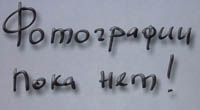 Фотографии
пока нет!